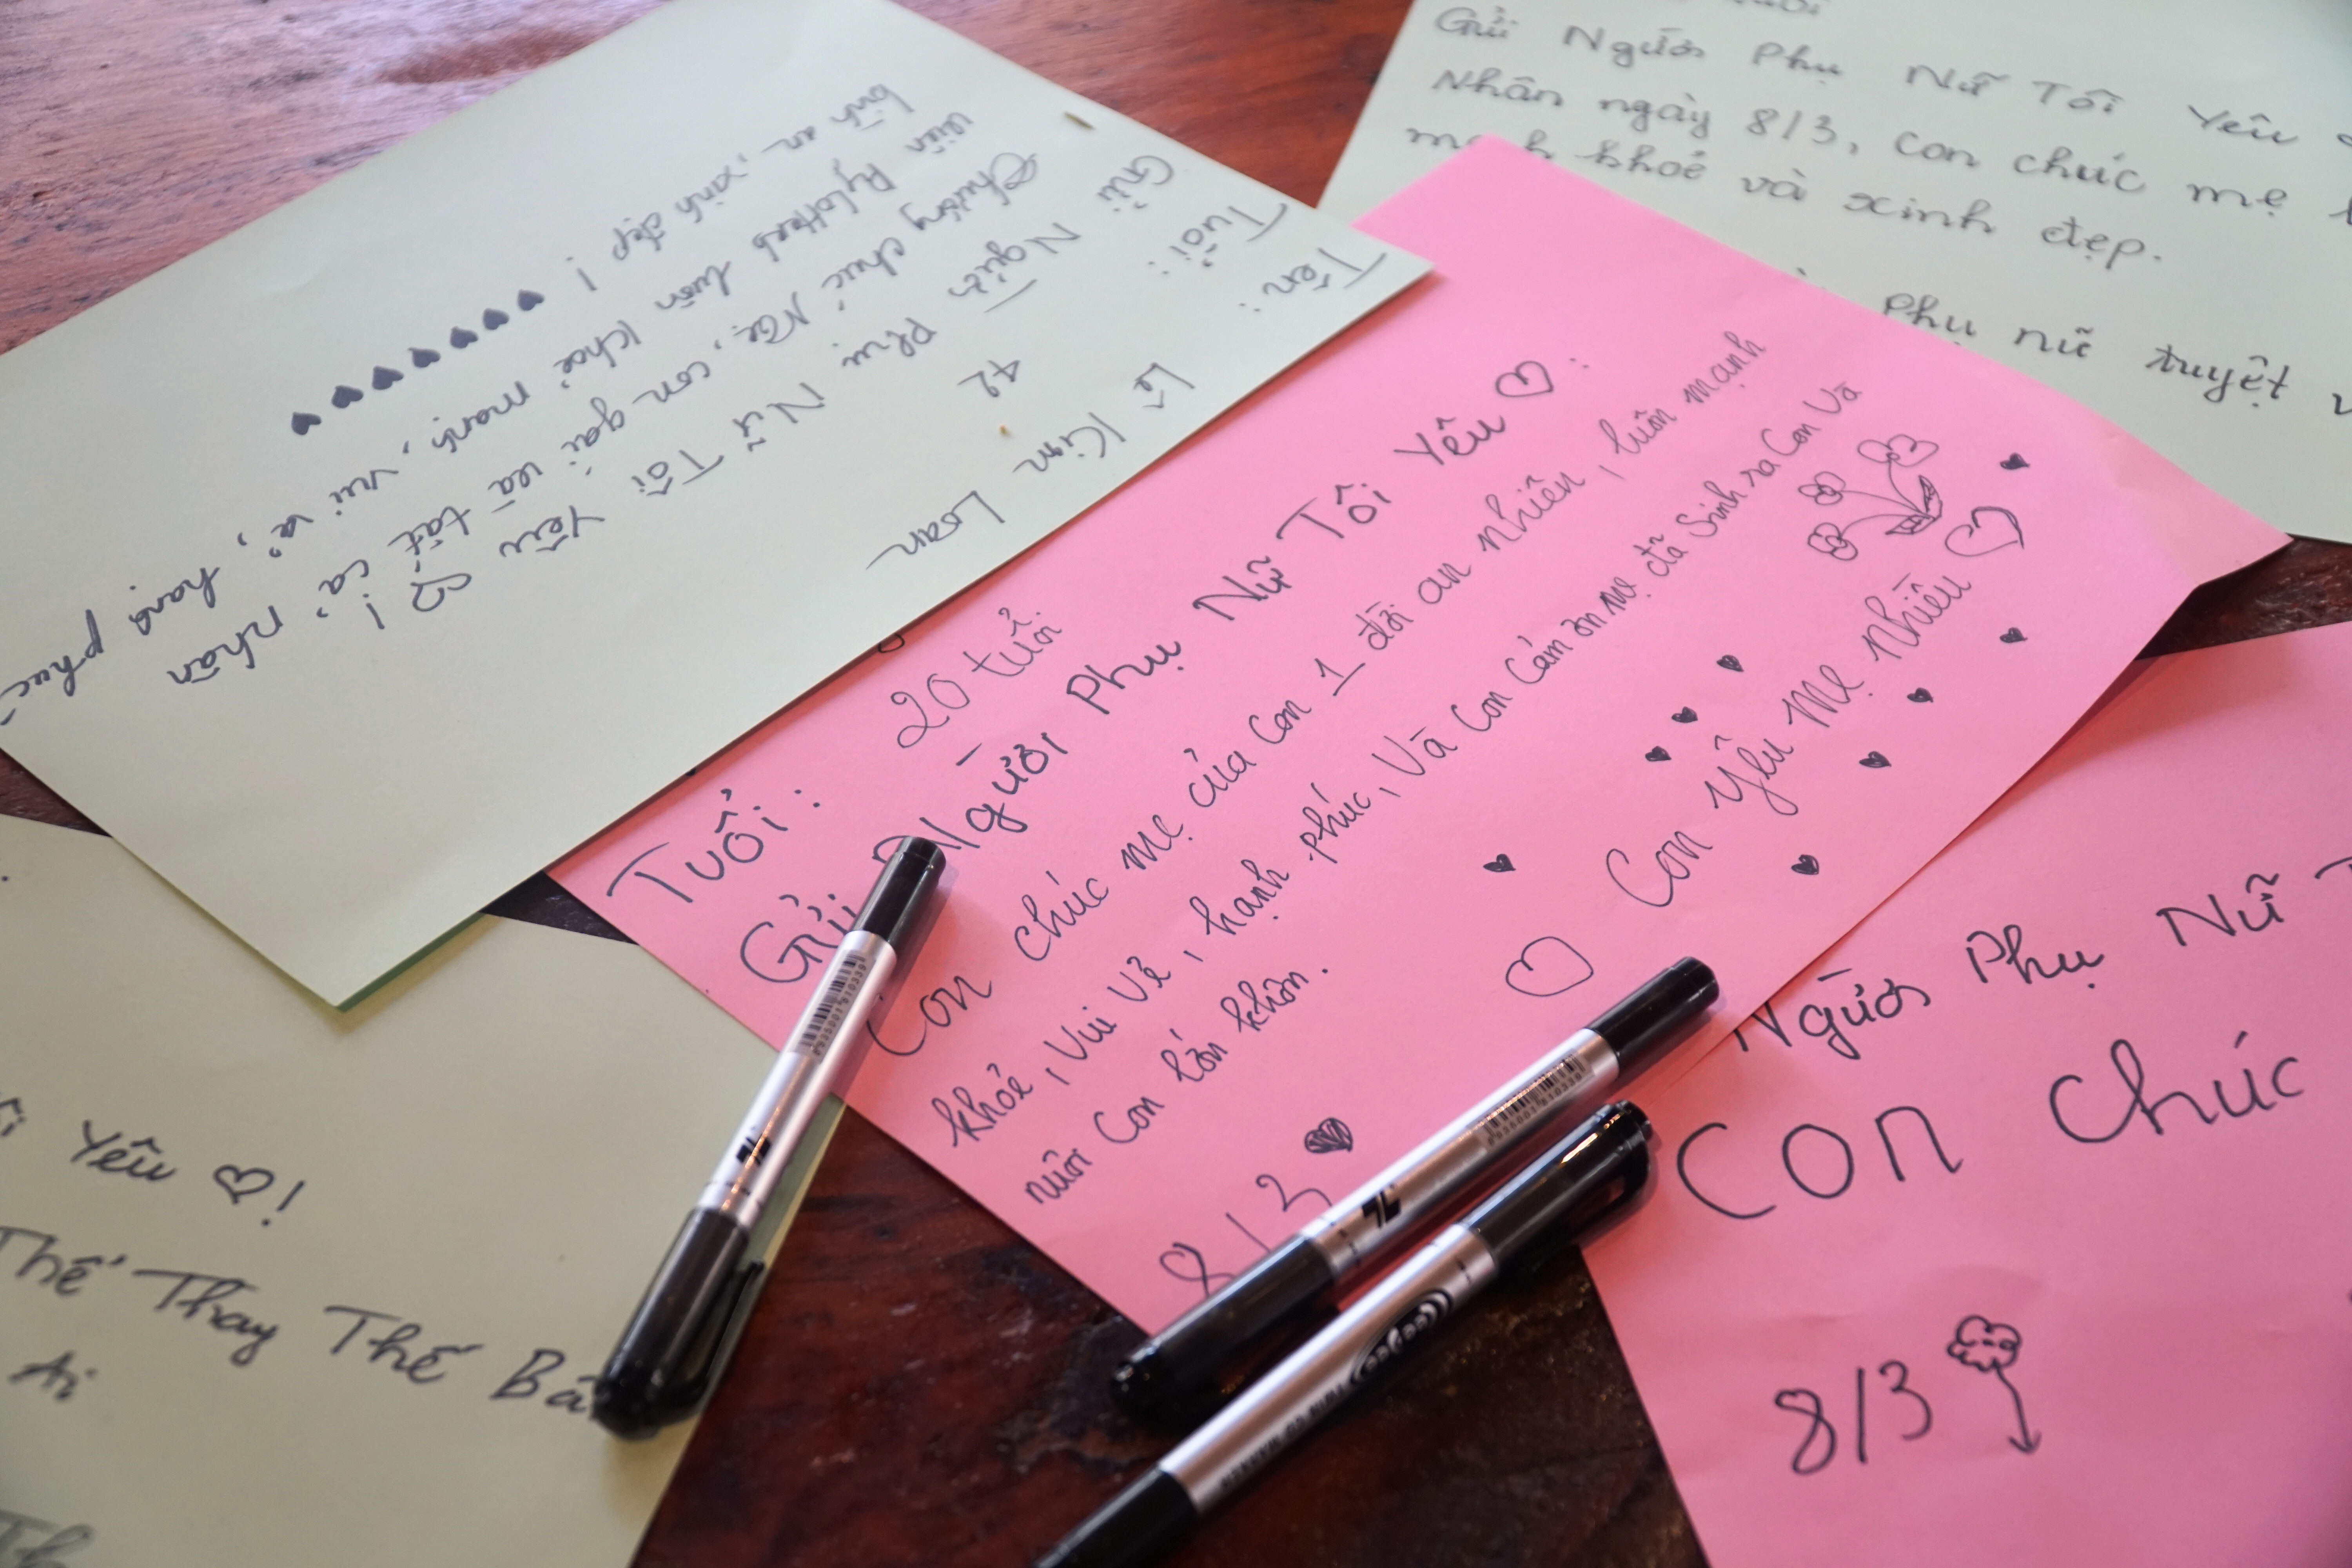 Tên: Lê Kim Loan
Tuổi: 42
Gửi Người Phụ Nữ Tôi Yêu !
Phương chúc Mẹ, con gái và tất cả nhân
viên luôn khoẻ mạnh, vui vẻ, hạnh phúc
bình an, xinh đẹp !
Gửi Người Phụ Nữ Tôi Yêu
Nhân ngày 8/3, con chúc mẹ
mạnh khoẻ và xinh đẹp.
Phụ nữ tuyệt
Tuổi: 20 tuổi
Gửi Người Phụ Nữ Tôi Yêu ♡ :
Con chúc mẹ của con 1 đời an nhiên, luôn mạnh
khỏe, vui vẻ, hạnh phúc, Và Con Cảm ơn mẹ đã Sinh ra Con Và
nuôi Con lớn khôn.
8/3
Con yêu mẹ nhiều ♡
Yêu ♡!
Thể Thay Thế
Ai
Người Phụ Nữ
Con chúc
8/3
8935001810339
8935001810339
TL
TL